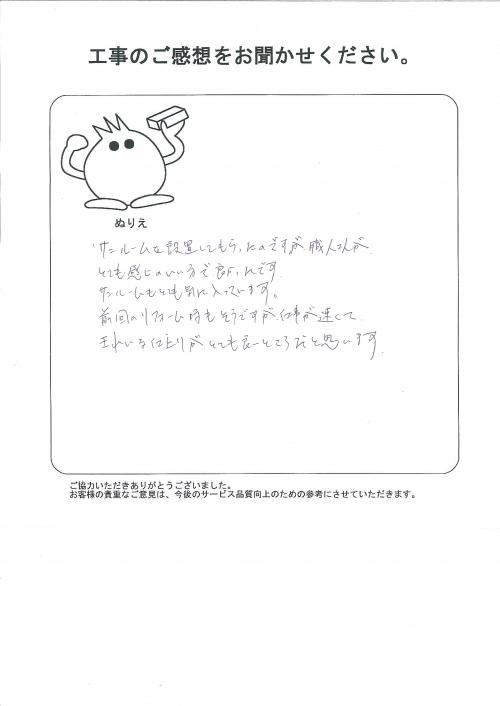 工事のご感想をお聞かせください。
ぬりえ
サンルームを設置してもらったのですが、職人さんが
とても感じのいい方で良かったです。
サンルームもとても気に入っています。
前回のリフォーム時もそうですが、仕事が速くて
きれいな仕上りがとても良いところだと思います。
ご協力いただきありがとうございました。
お客様の貴重なご意見は、今後のサービス品質向上のための参考にさせていただきます。